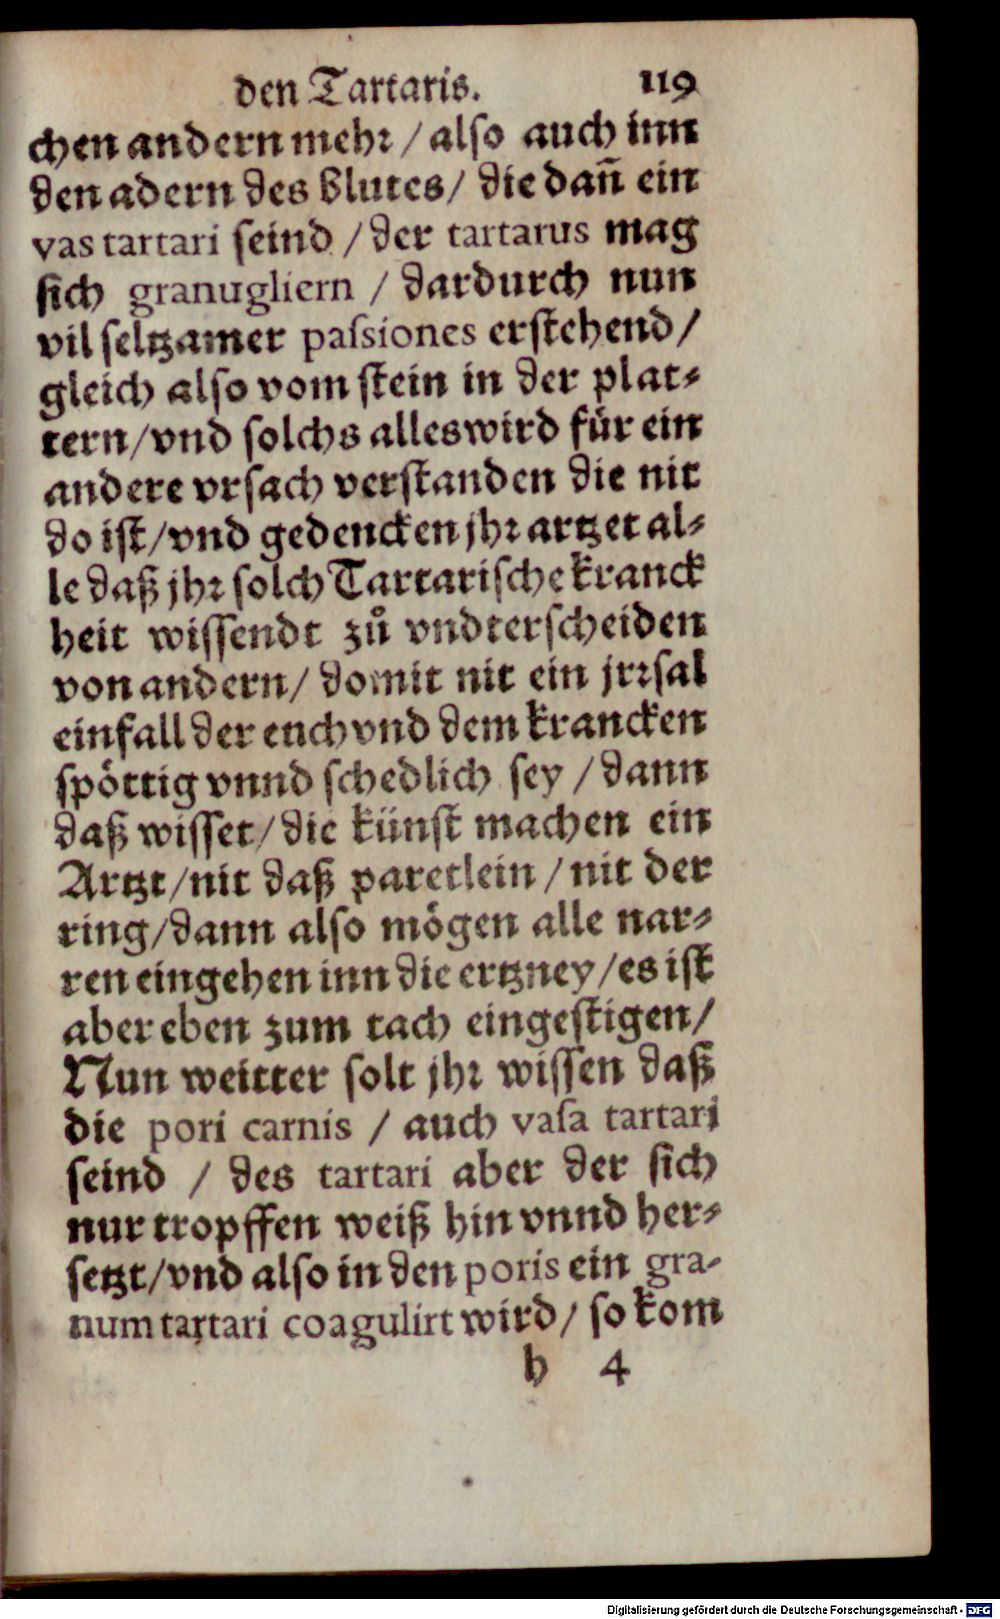 den Tartaris. 119
chen andern mehꝛ / also auch inn
den adern des Blutes / die dañ ein
vas tartari seind / der tartarus mag
sich granugliern / dardurch nun
vil seltzamer paſsiones erstehend /
gleich also vom stein in der plat⸗
tern / vnd solchs alles wird für ein
andere vrsach verstanden die nit
do ist / vnd gedencken jhꝛ artzet al⸗
le daß jhꝛ solch Tartarische kranck
heit wissendt zů vndterscheiden
von andern / domit nit ein jrꝛsal
einfall der euch vnd dem krancken
spöttig vnnd schedlich sey / dann
daß wisset / die künst machen ein
Artzt / nit daß paretlein / nit der
ring / dann also mögen alle nar⸗
ren eingehen inn die ertzney / es ist
aber eben zum tach eingestigen /
Nun weitter solt jhꝛ wissen daß
die pori carnis / auch vaſa tartari
seind / des tartari aber der sich
nur tropffen weiß hin vnnd her⸗
setzt / vnd also in den poris ein gra-
num tartari coagulirt wird / so kom
h 4
Digitalisierung gefördert durch die Deutsche Forschungsgemeinschaft - DFG